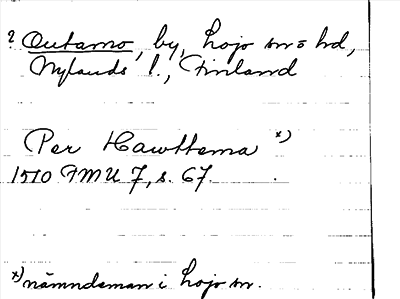 ? Outamo, by, Lojo sn o hd,
Nylands l., Finland
Per Hawttema x)
1510 FMU 7, s. 67.
x) nämndeman i Lojo sn.